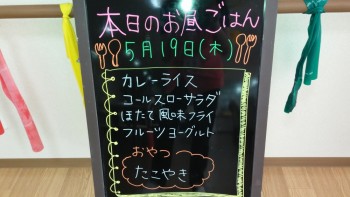 本日のお昼ごはん
5月19日(木)
カレーライス
コールスローサラダ
ほたて風味フライ
フルーツヨーグルト
おやつ
たこやき